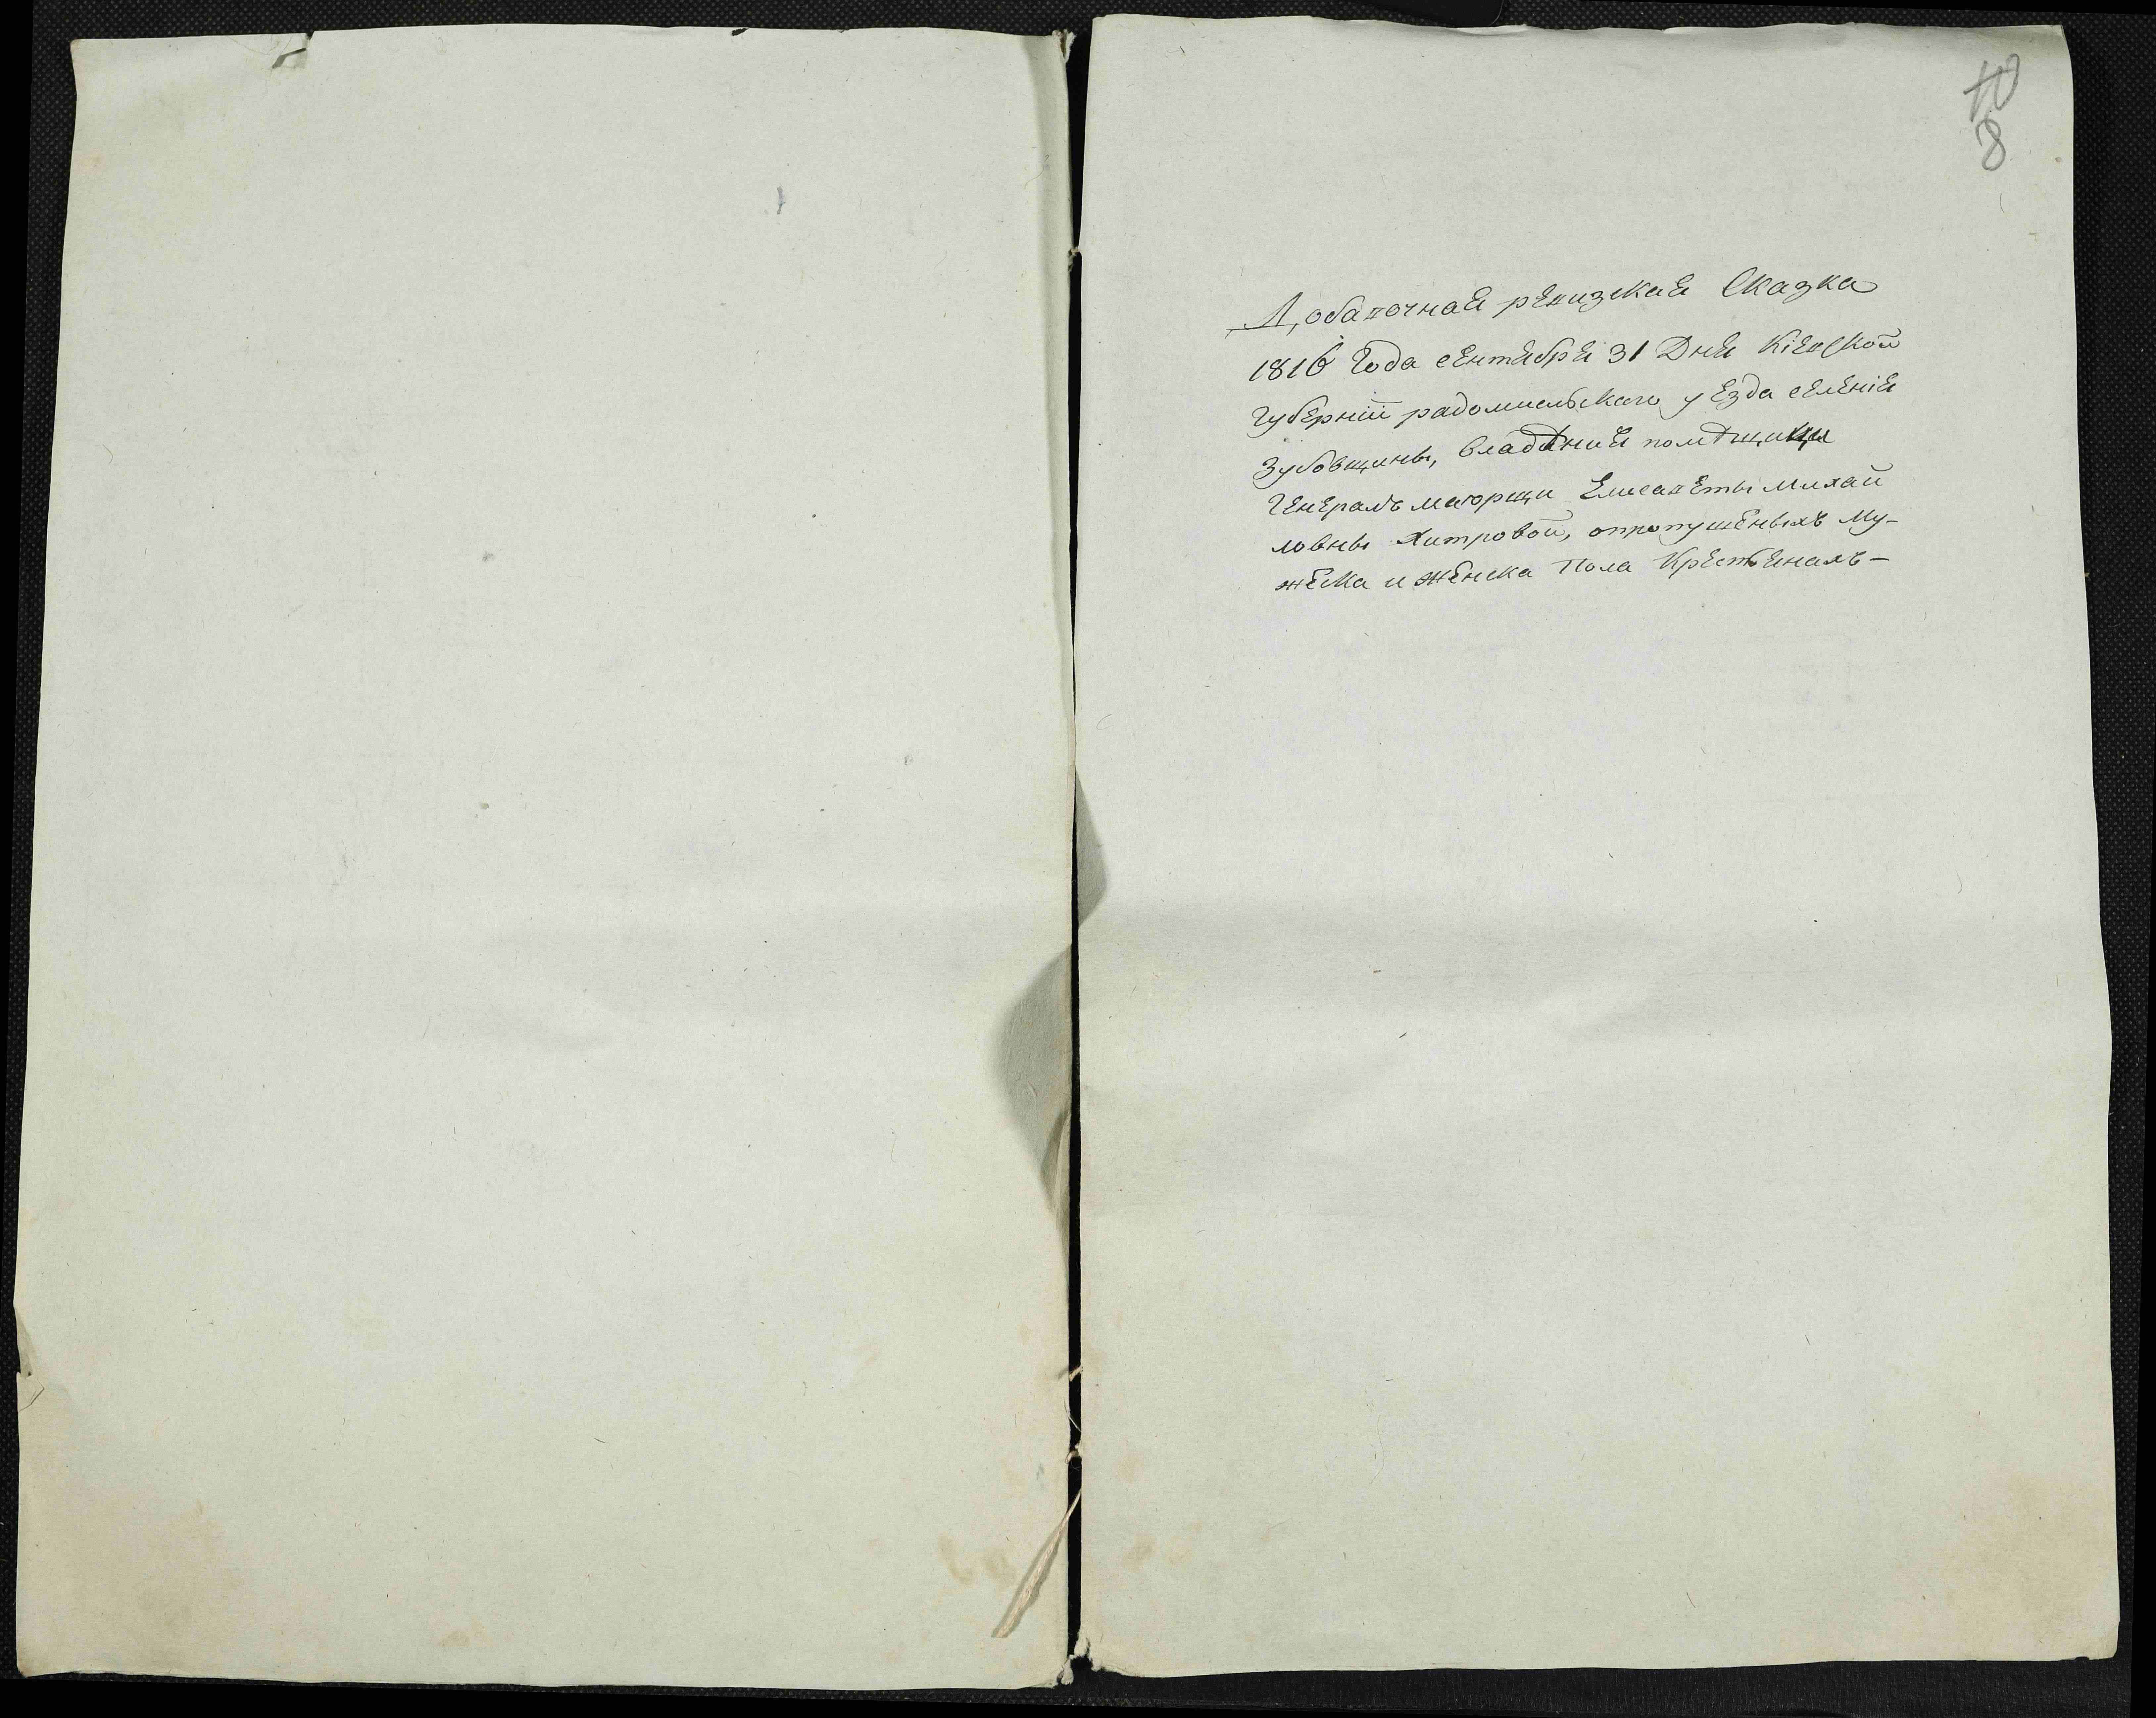 10
8
Добавочная ревизская Сказка
1816 Года сентября 31 Дня Кіевской
Губерніи радомысльскаго уезда селенія
Зубовщины, владѣния помѣщицы
Генералъ маіорщи Елисаветы Михай
ловны Хитровой, опропущеныхъ му-
жеска и женска Пола Крестьянахъ-